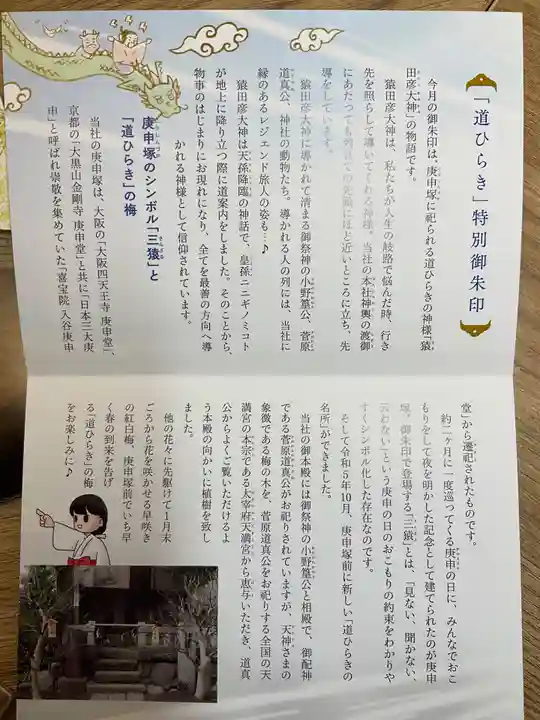 「道ひらき」特別御朱印
今月の御朱印は、庚申塚に祀られる道ひらきの神様『猿
田彦大神』の物語です。
猿田彦大神は、私たちが人生の岐路で悩んだ時、行き
先を照らして導いてくれる神様。当社の本社神輿の渡御
にあたっても列の先頭にほど近いところに立ち、先
導をしています。
猿田彦大神に導かれて清まる御祭神の小野篁公、菅原
道真公、神社の動物たち。導かれる人の列には、当社に
縁のあるレジェンド旅人の姿も…♪
猿田彦大神は天孫降臨の神話で、皇孫ニニギノミコト
が地上に降り立つ際に道案内をしました。そのことから、
物事のはじまりにお現れになり、全てを最善の方向へ導
かれる神様として信仰されています。
庚申塚のシンボル「三猿」と
「道ひらき」の梅
当社の庚申塚は、大阪の「大阪四天王寺 庚申堂」、
京都の「大黒山金剛寺 庚申堂」と共に「日本三大庚
申」と呼ばれ崇敬を集めていた「喜宝院 入谷庚申
堂」から遷祀されたものです。
約二ヶ月に一度巡ってくる庚申の日に、みんなでおこ
もりをして夜を明かした記念として建てられたのが庚申
塚。御朱印で登場する「三猿」とは、「見ない、聞かない、
云わない」という庚申の日のおこもりの約束をわかりや
すくシンボル化した存在なのです。
そして令和5年10月、庚申塚前に新しい「道ひらきの
名所」ができました。
当社の御本殿には御祭神の小野篁公と相殿で、御配神
である菅原道真公がお祀りされていますが、天神さまの
象徴である梅の木を、菅原道真公をお祀りする全国の天
満宮の本宗である太宰府天満宮から恵与いただき、道真
公からよくご覧いただけるよ
う本殿の向かいに植樹を致し
ました。
他の花々に先駆けて1月末
ごろから花を咲かせる早咲き
の紅白梅、庚申塚前でいち早
く春の到来を告げ
る「道ひらき」の梅
をお楽しみに♪